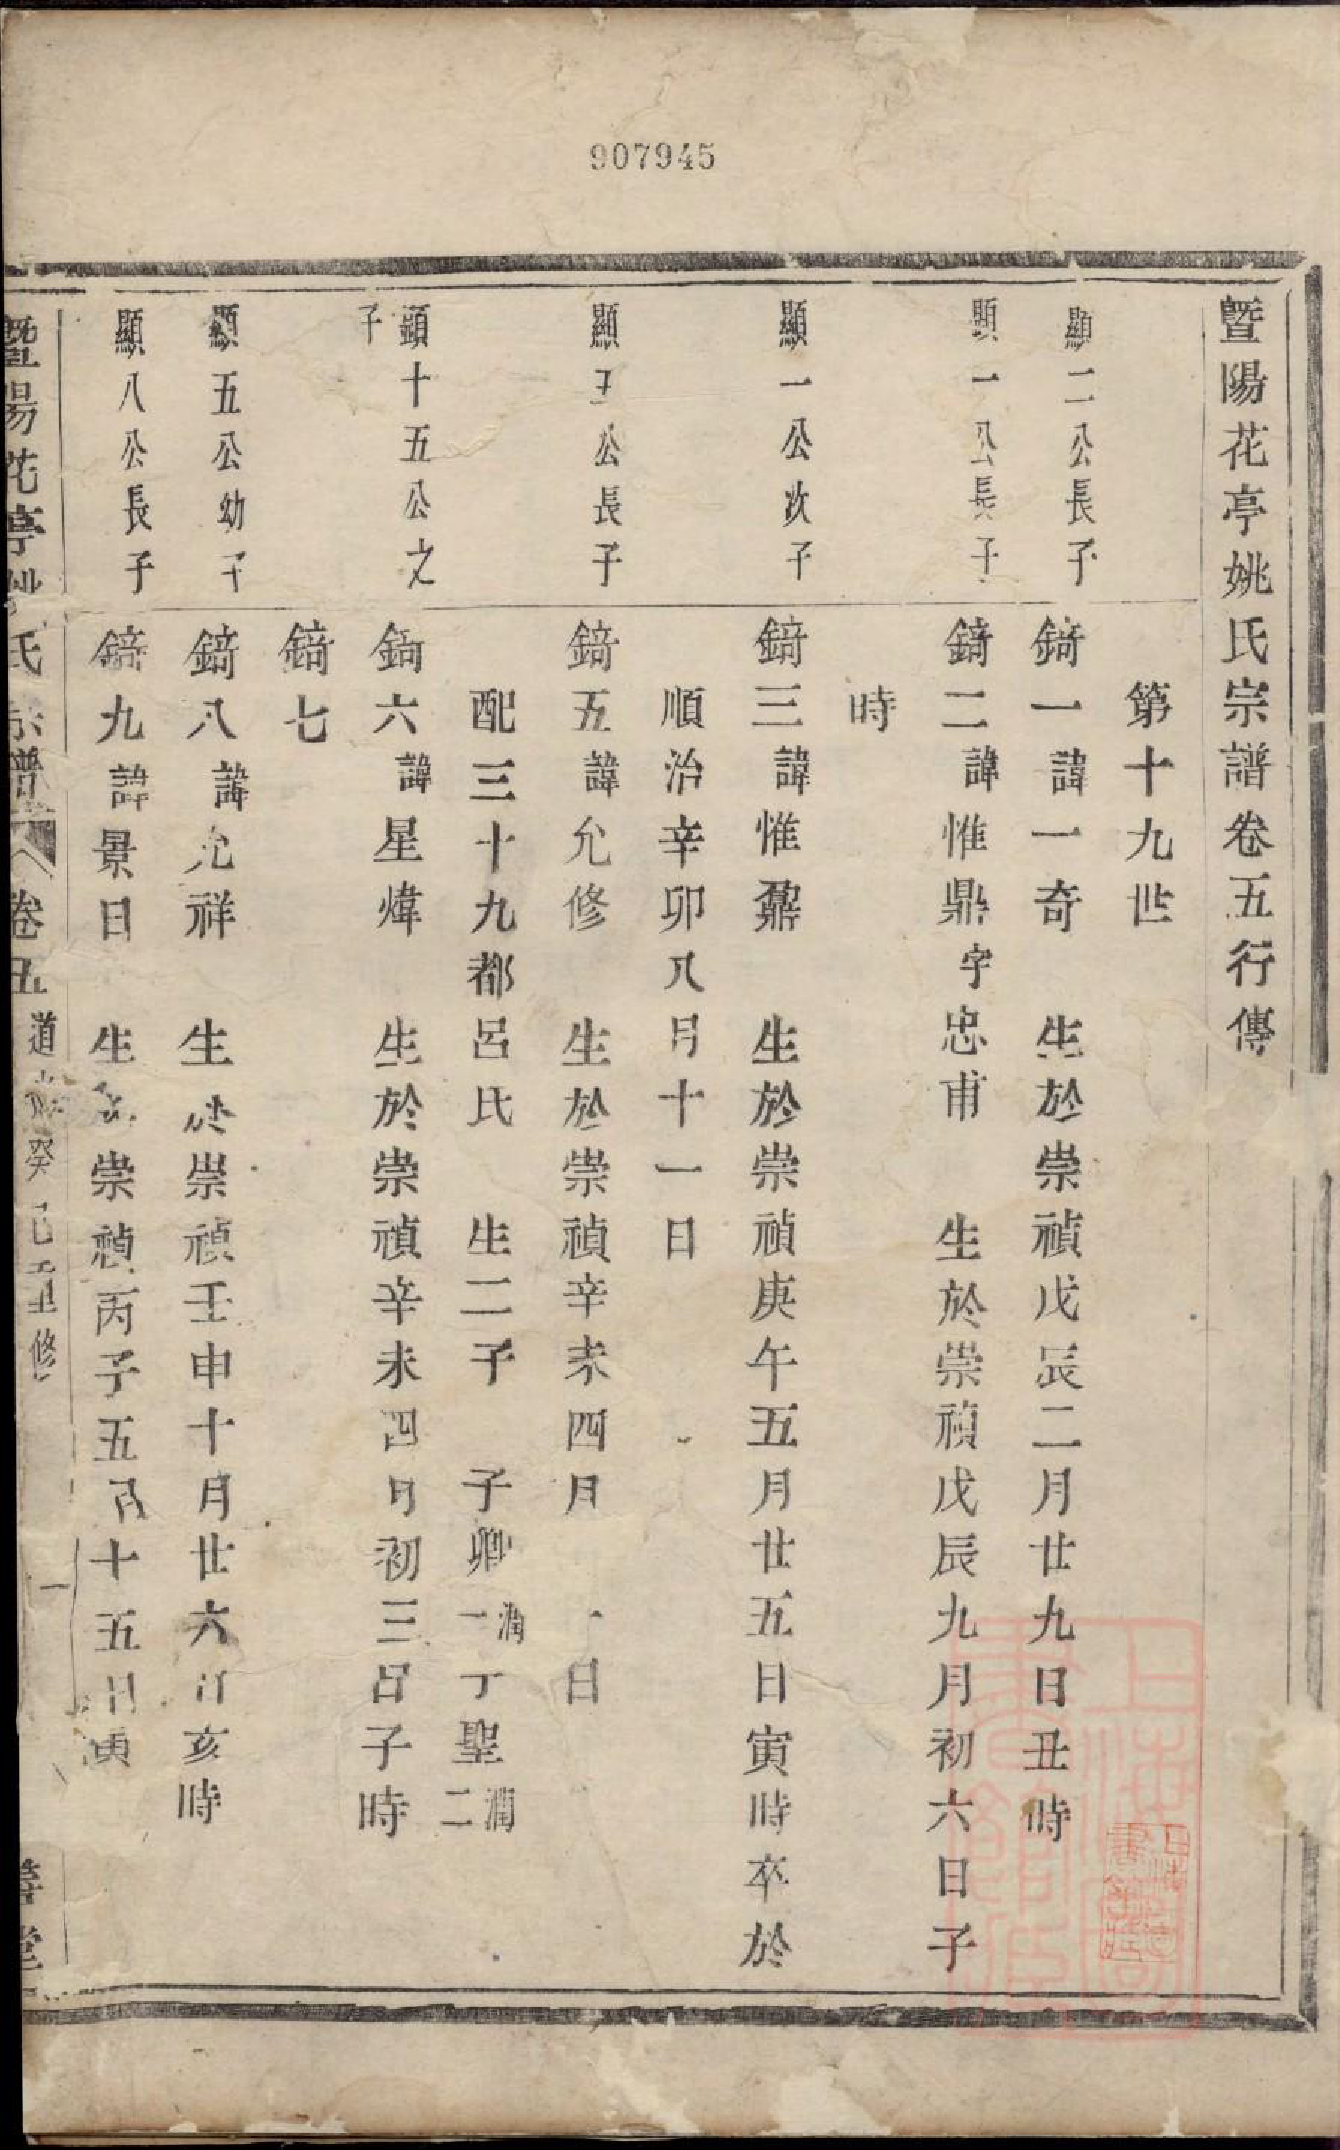 907945
暨陽花亭姚氏宗譜卷五行傳
第十九世
顯二公長子
錡一諱一奇 生於崇禎戊辰二月廿九日丑時
顯一公長子
錡二諱惟鼎字忠甫 生於崇禎戊辰九月初六日子
時
顯一公次子
錡三諱惟鼐 生於崇禎庚午五月廿五日寅時卒於
順治辛卯八月十一日
顯五公長子
錡五諱允修 生於崇禎辛未四月 一日
配三十九都呂氏 生二子 子卿潤一 丁聖潤二
顯十五公之
子
錡六諱星煒 生於崇禎辛未四月初三日子時
錡七
顯五公幼子
錡八諱允祥 生於崇禎壬申十月廿六日亥時
顯八公長子
錡九諱景日 生於崇禎丙子五月十五日寅
暨陽花亭姚氏宗譜 卷五 道光癸巳重修 一 善堂
上海圖書館藏